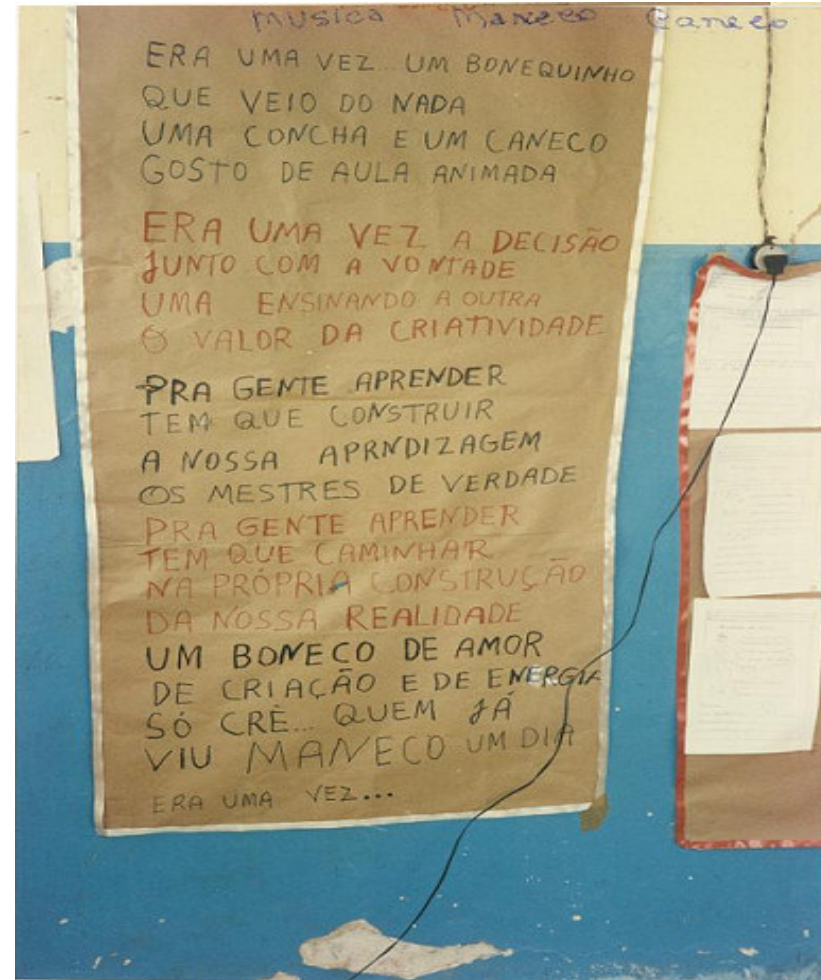 musica Maneco Caneco
ERA UMA VEZ... UM BONEQUINHO
QUE VEIO DO NADA
UMA CONCHA E UM CANECO
GOSTO DE AULA ANIMADA
ERA UMA VEZ A DECISÃO
JUNTO COM A VONTADE
UMA ENSINANDO A OUTRA
O VALOR DA CRIATIVIDADE
PRA GENTE APRENDER
TEM QUE CONSTRUIR
A NOSSA APRNDIZAGEM
OS MESTRES DE VERDADE
PRA GENTE APRENDER
TEM QUE CAMINHAR
NA PRÓPRIA CONSTRUÇÃO
DA NOSSA REALIDADE
UM BONECO DE AMOR
DE CRIAÇÃO E DE ENERGIA
SÓ CRÊ... QUEM JÁ
VIU MANECO UM DIA
ERA UMA VEZ...